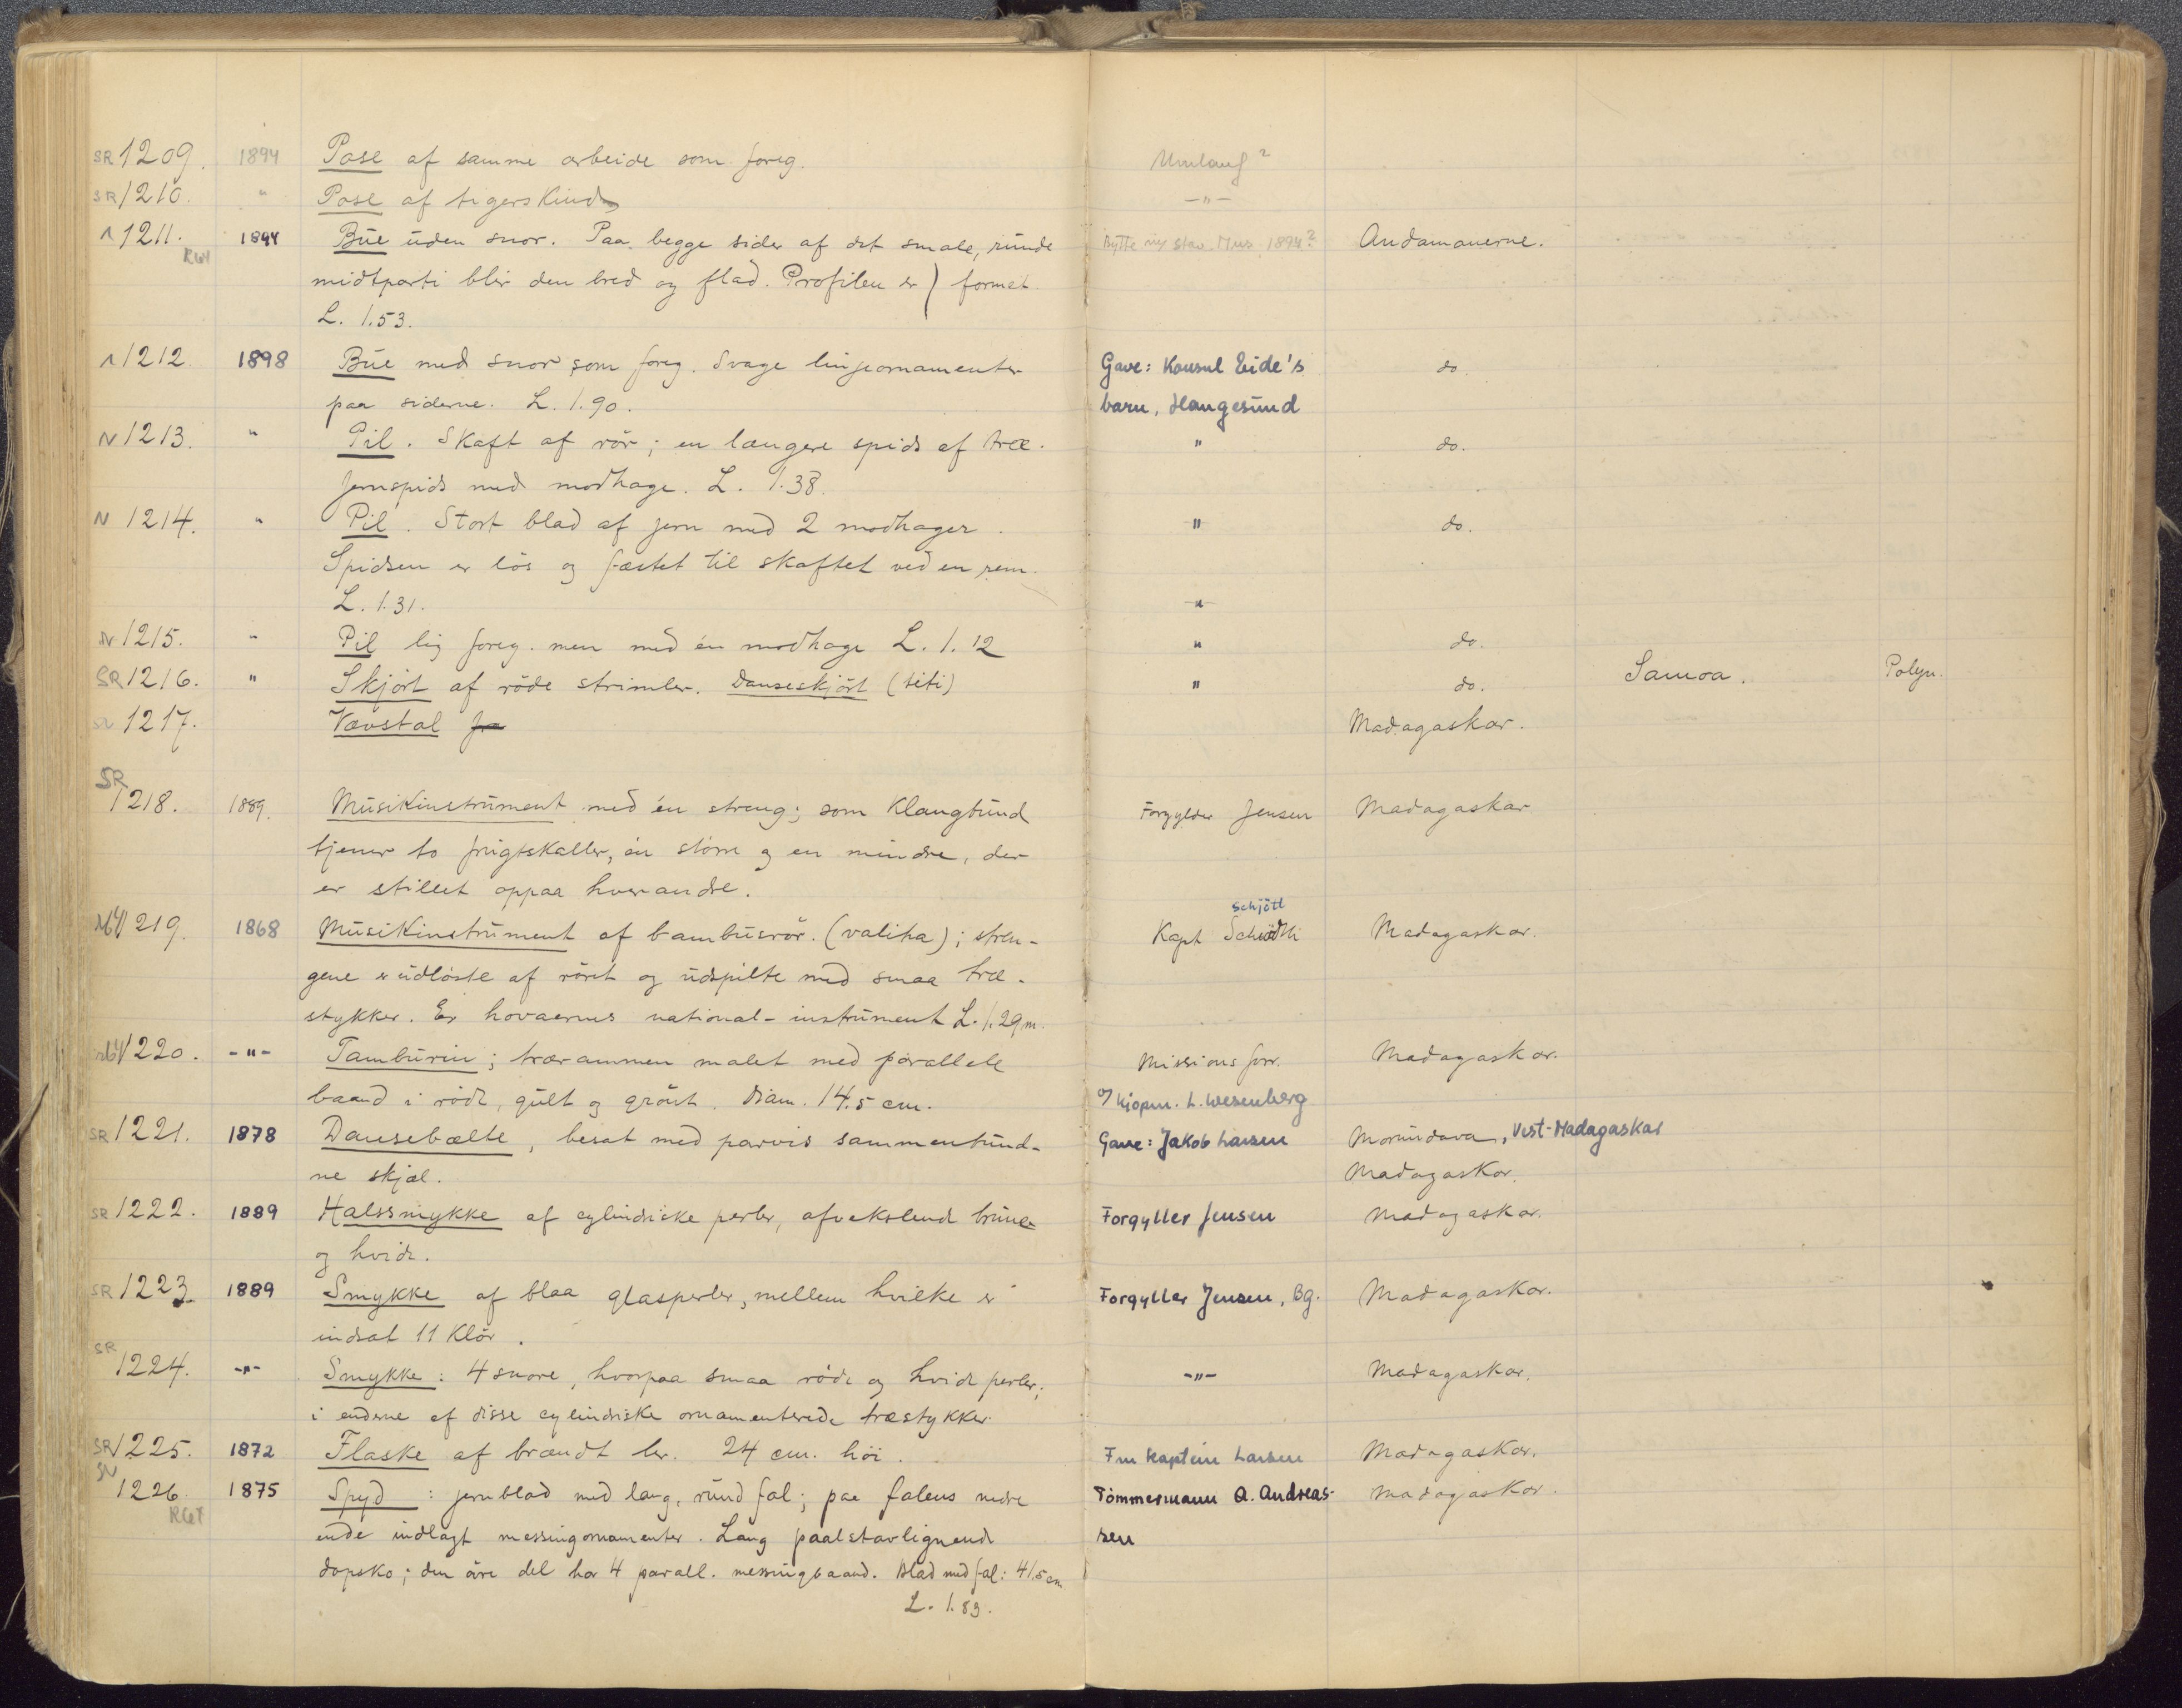 SR 1209. 1894 Pose af samme arbeide som foreg. Umlauf?
SR 1210. " Pose af tigerskind -"-
1211. 1894 Bue uden snor. Paa begge sider af det smale, runde Bytte Stav. Mus. 1894? Andamanerne.
midtparti blir den bred og flad. Profilen er ) formet
L. 1.53.
1212. 1898 Bue med snor som foreg. Svage linjeornamenter Gave: Konsul Eide's do.
paa siderne. L. 1.90. barn, Haugesund
N 1213. " Pil. Skaft af rör; en længere spids af træ. " do.
Jernspids med modhage. L. 1.38.
N 1214. " Pil. Stort blad af jern med 2 modhager. " do.
Spidsen er lös og fæstet til skaftet ved en rem.
L. 1.31. "
N 1215. " Pil lig foreg. men med én modhage L. 1.12 " do.
SR 1216. " Skjört af röde strimler. Danseskjört (titi) " do. Samoa. Polyn.
1217. Vævstol Madagaskar.
SR
1218. 1889. Musikinstrument med én streng; som klangbund Forgylder Jensen Madagaskar
tjener to frugtskaller, én större og en mindre, der
er stillet oppaa hverandre.
Schjött
1219. 1868 Musikinstrument af bambusrör. (valiha); stren- Kapt Madagaskar.
gene er udlöste af röret og udspilte med smaa træ-
stykker. Er hovaernes national-instrument L. 1.29 m.
1220. -"- Tamburin; trærammen malet med parallele Missionsforr. Madagaskar.
baand i rödt, gult og grönt. Diam. 14.5 cm. v/ kjøpm. L. Wesenberg
SR 1221. 1878 Dansebælte, besat med parvis sammenbund- Gave: Jakob Larsen Morundava, Vest-Madagaskar
ne skjæl. Madagaskar.
SR 1222. 1889 Halssmykke af cylindriske perler, afvekslend brune Forgyller Jensen Madagaskar.
og hvide.
SR 1223. 1889 Smykke af blaa glasperler, mellem hvilke er Forgyller Jensen, Bg. Madagaskar.
indsat 11 Klör.
SR
1224. -"- Smykke: 4 snore, hvorpaa smaa röde og hvide perler; -"- Madagaskar.
i enderne af disse cylindriske ornamenterede træstykker.
SR 1225. 1872 Flaske af brændt ler. 24 cm. höi. Fru kaptein Larsen Madagaskar.
1226. 1875 Spyd: jernblad med lang, rund fal; paa falens nedre Tömmermann A. Andreas- Madagaskar.
ende indlagt messingornamenter. Lang paalstavlignende sen
dopsko; den övre del har 4 parall. messingbaand. Blad med fal: 41.5 cm
L. 1.83.